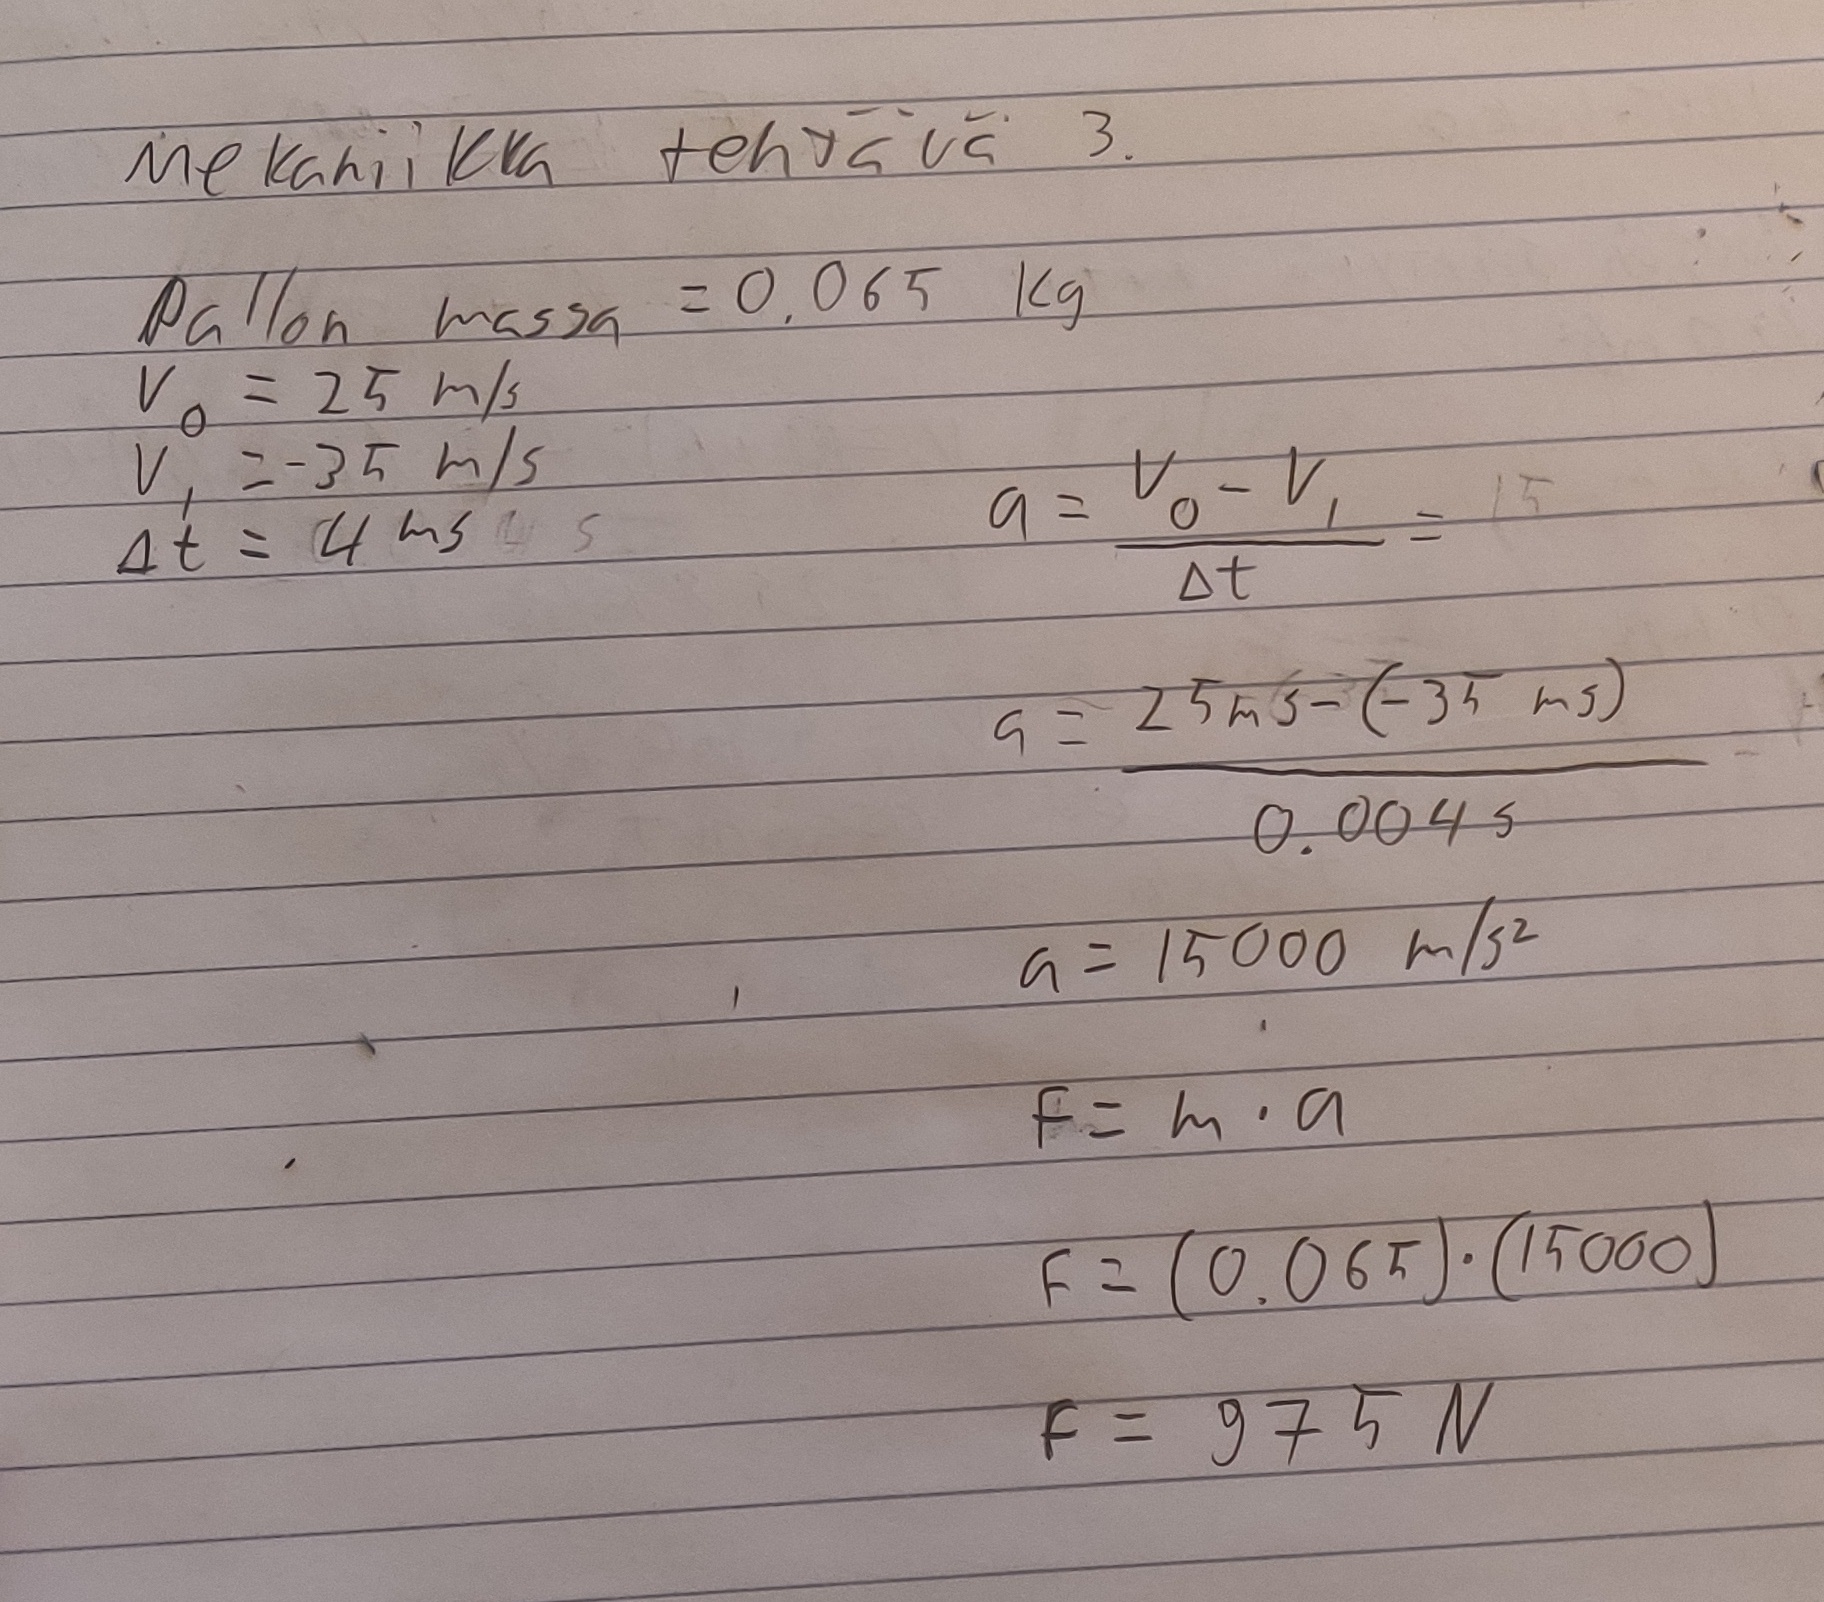 Mekaniikka tehtävä 3.
Pallon massa = 0.065 kg
V₀ = 25 m/s
V₁ = -35 m/s
Δt = 4 ms
a = (V₀ - V₁) / Δt =
a = (25 ms - (-35 ms)) / 0.004 s
a = 15000 m/s²
F = m · a
F = (0.065) · (15000)
F = 975 N